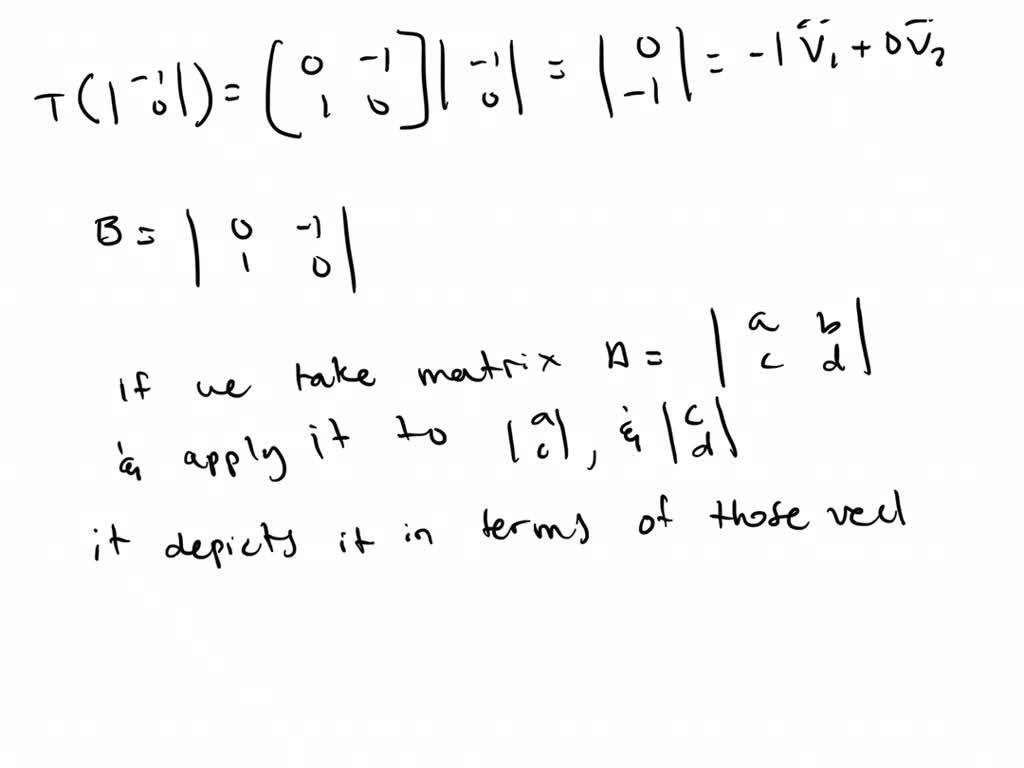 T(|-1 0|) = [0 -1 1 0] |-1 0| = |0 -1| = -1 v̄₁ + 0 v̄₂
B = |0 -1 1 0|
if we take matrix A = |a b c d|
& apply it to |a c|, & |c d|
it depicts it in terms of those vect